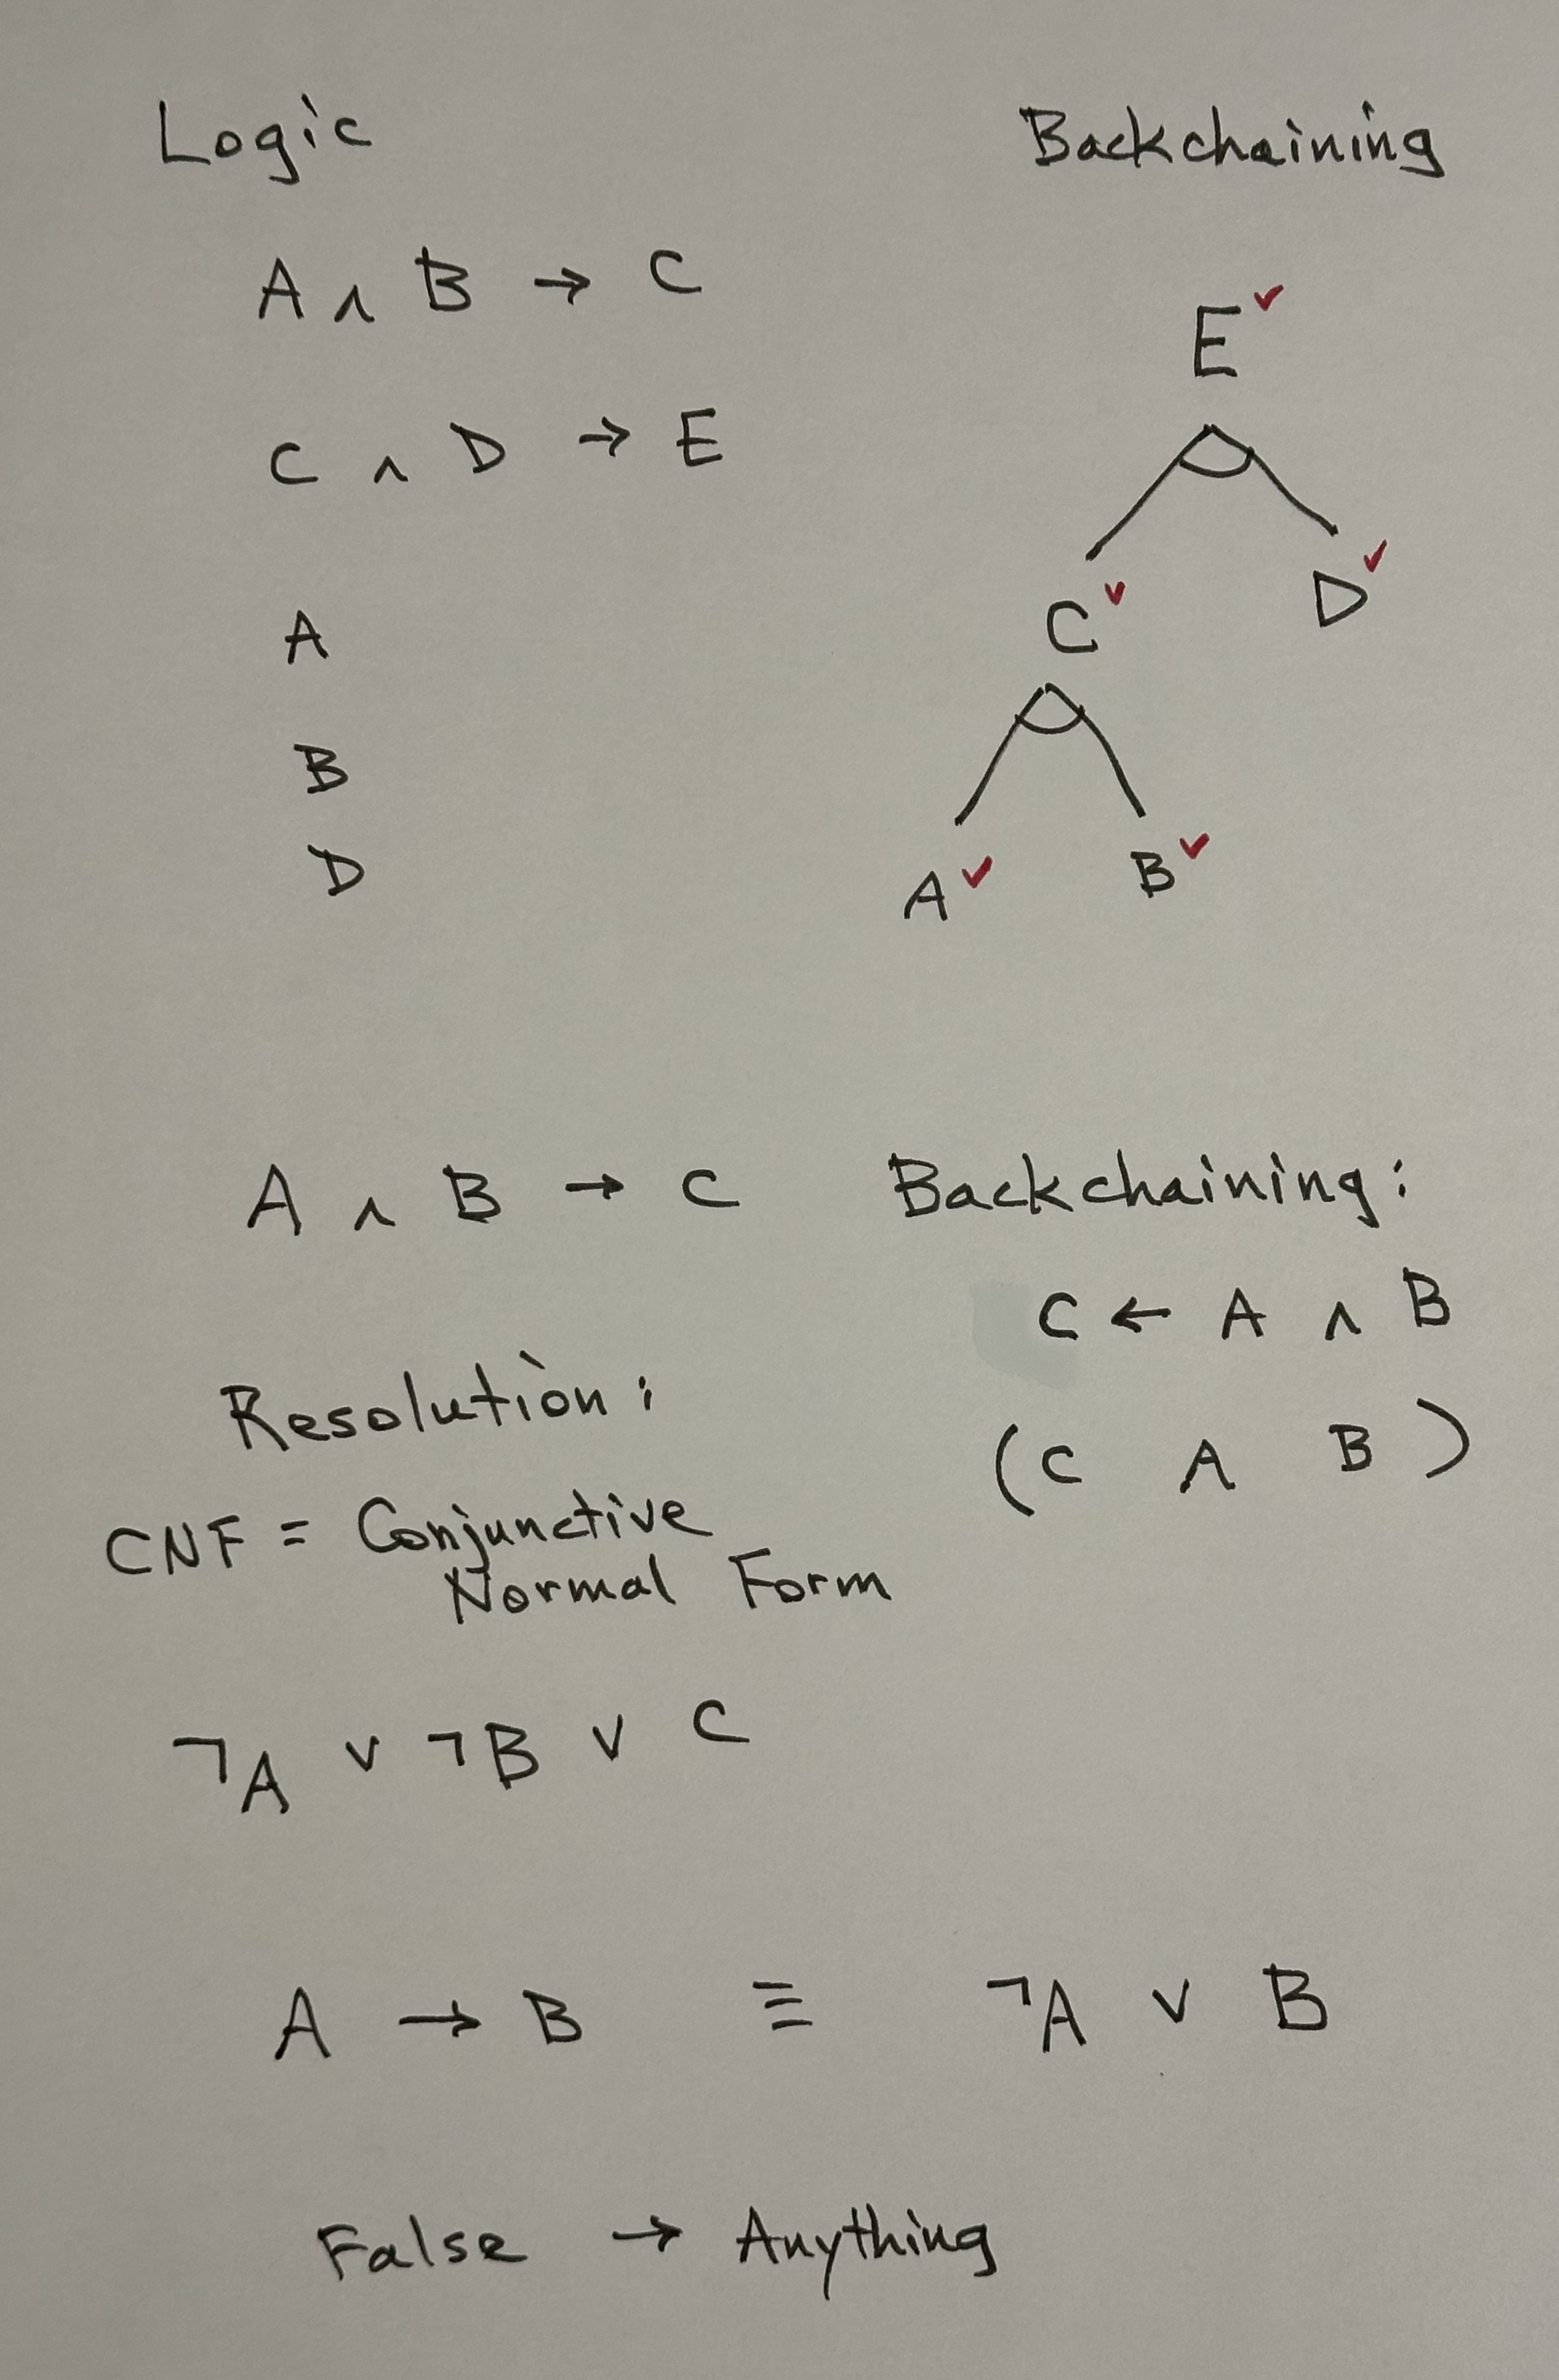 Logic
A ∧ B → C
C ∧ D → E
A
B
D
Backchaining
E ✓
C ✓ D ✓
A ✓ B ✓
A ∧ B → C
Backchaining:
C ← A ∧ B
(C A B)
Resolution:
CNF = Conjunctive
Normal Form
¬A ∨ ¬B ∨ C
A → B ≡ ¬A ∨ B
False → Anything